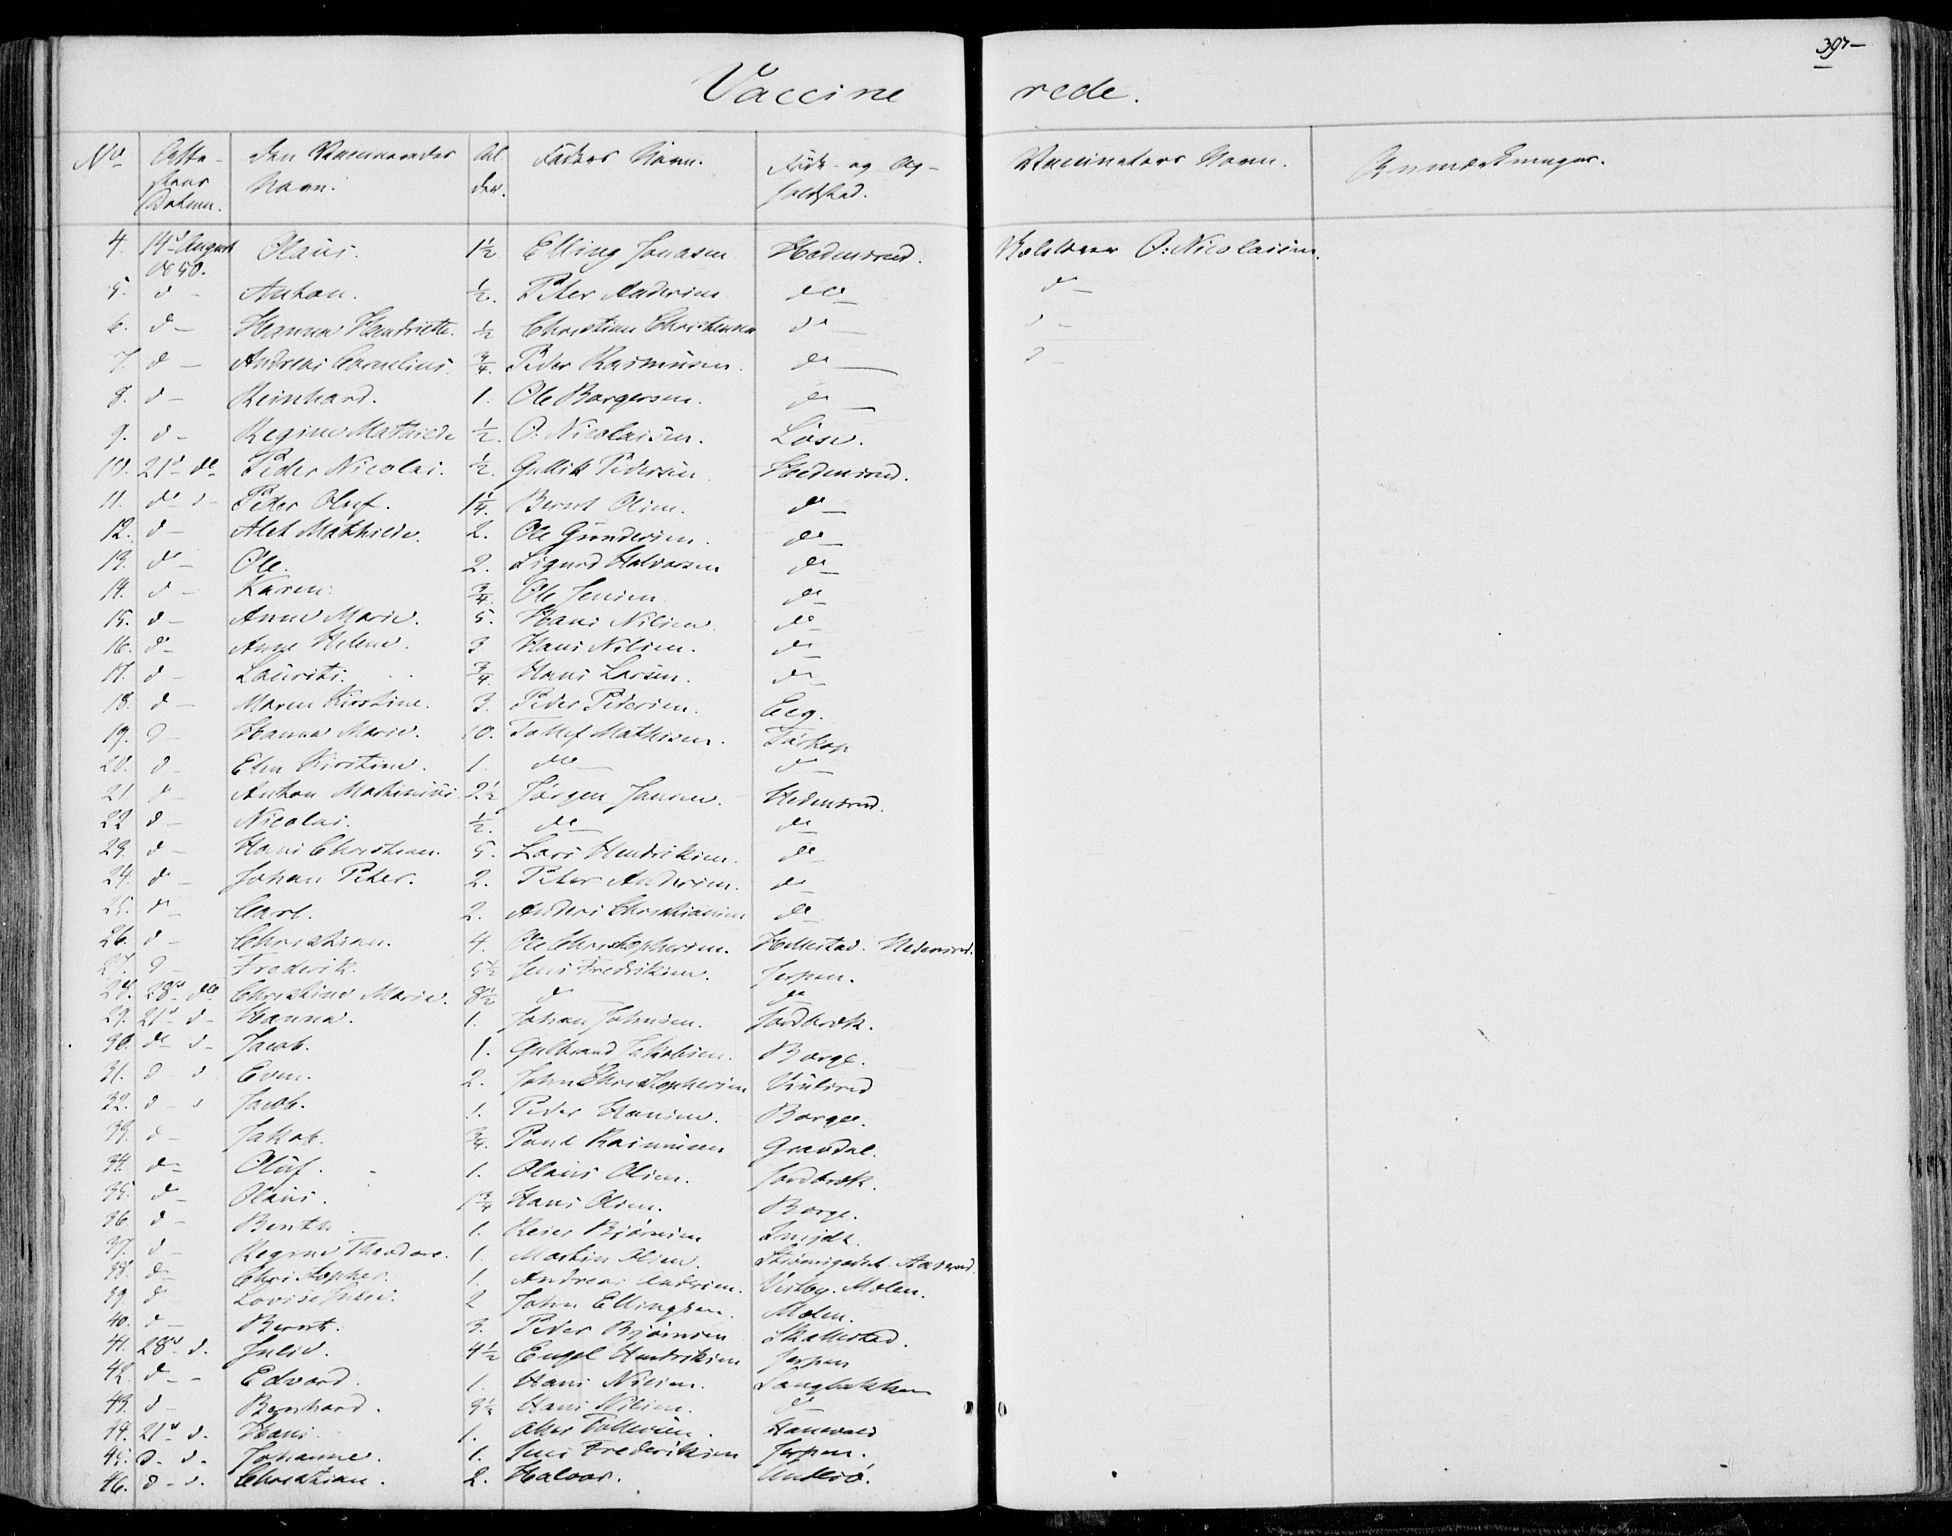 397-
Vaccinerede.
No Attestens Datum. Den Vaccineredes Navn. Alder. Faders Navn. Føde- og Opholdsted. Vaccinators Navn. Anmærkninger.
4. 14de August 1850. Olaus. 1½ Elling Jonasen Hedensrud. O: Nicolaisen.
5. d- Anton. ½. Peter Andersen do d-
6. d- Hanna Hendriette. ½ Christian Christensen do d-
7. d- Andreas Cornelius. ¾. Peder Rasmusen do d-
8. d- Reinhard. 1. Ole Borgersen. do
9. d- Regine Mathilde ½. O: Nicolaisen.
10. 21de do Peder Nicolai. ½. Gullik Pedersen Hedensrud.
11. do d- Peder Oluf. 1¼. Bernt Olsen. do
12. d- Alet Mathilde. 2. Ole Gundersen. do
13. do Ole. 2. Sigurd Halvorsen do
14. d- Karen. ¾ Ole Jensen do
15. d- Anne Marie. 5. Hans Nilsen do
16. d- Anne Helene. 3 Hans Nilsen. do
17. d- Laurits. ¾. Hans Larsen. do
18. d- Maren Kirstine. 3. Peder Pedersen. Eeg.
19. d- Hanna Marie. 10. Tollef Mathisen. Torkop
20. d- Elen Kirstine. 1. do do
21. d- Anton Mathinius 2½ Jørgen Jansen. Hedensrud.
22 d- Nicolai. ½. do do
23. d- Hans Christian. 5. Lars Hendriksen. do
24. d- Johan Peter. 2. Peter Andersen. do
25. d- Carl. 2. Anders Christiansen do
26. d- Christian. 4. Ole Christophersen. Hillestad. Hedensrud.
27. d- Frederik. 5½ Jens Fredriksen. Jerpen.
28. 28de do Christine Marie. 8½ d do
29. 21de d- Hanna. 1. Johan Johnsen. Jordbræk.
30. do d- Jacob. 1. Gulbrand Jakobsen. Borge.
31. d- d Even. 2. John Christophersen
32. d- d Jacob. 1. Peder Hansen. Borge.
33. d- Jakob. ¾. Paul Rasmusen Gravdal.
34. d- Oluf. 1. Olaus Olsen. Jordbræk.
35. d- Olaus. 1¾ Hans Olsen. Borge.
36. d- Benth. 1. Reier Bjørnsen
37. d- Regine Theodore. 1. Martin Olsen. Aasrud.
38. d- Christopher. 1. Andreas Andersen. Virkby. Molen.
39. d- Lovise Julie. 2 John Ellingsen. Molen.
40. d- Bernt. 3. Peder Bjørnsen Skallestad.
41. 28de d. Julie. 4½ Engel Hendriksen Jerpen
42. d- - Edvard. 1. Hans Nilsen. Langbakken
43. d- Bernhard. 9½ Hans Nilsen. do
44. 21de d. Hans. 1. Tollevsen. Hanevold
45. d- d- Johanne. 1. Jens Frederiksen Jerpen.
46. d- d. Christian. 2. Halvor. Undersø.